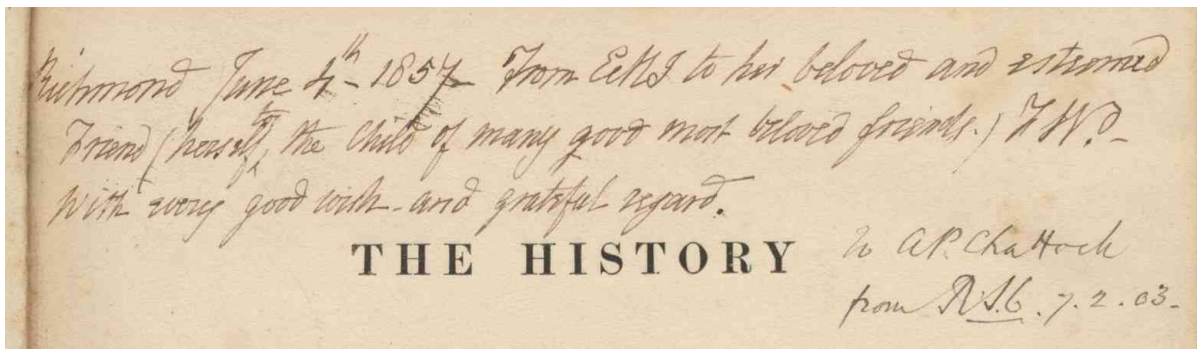 Richmond June 4th 1857 From EKI to her beloved and esteemed
Friend (herself, too the Child of many good most beloved friends.) F W.P.
With every good wish - and grateful regard.
THE HISTORY
to A.P. Chattock
from R.S.C. 7.2.03-